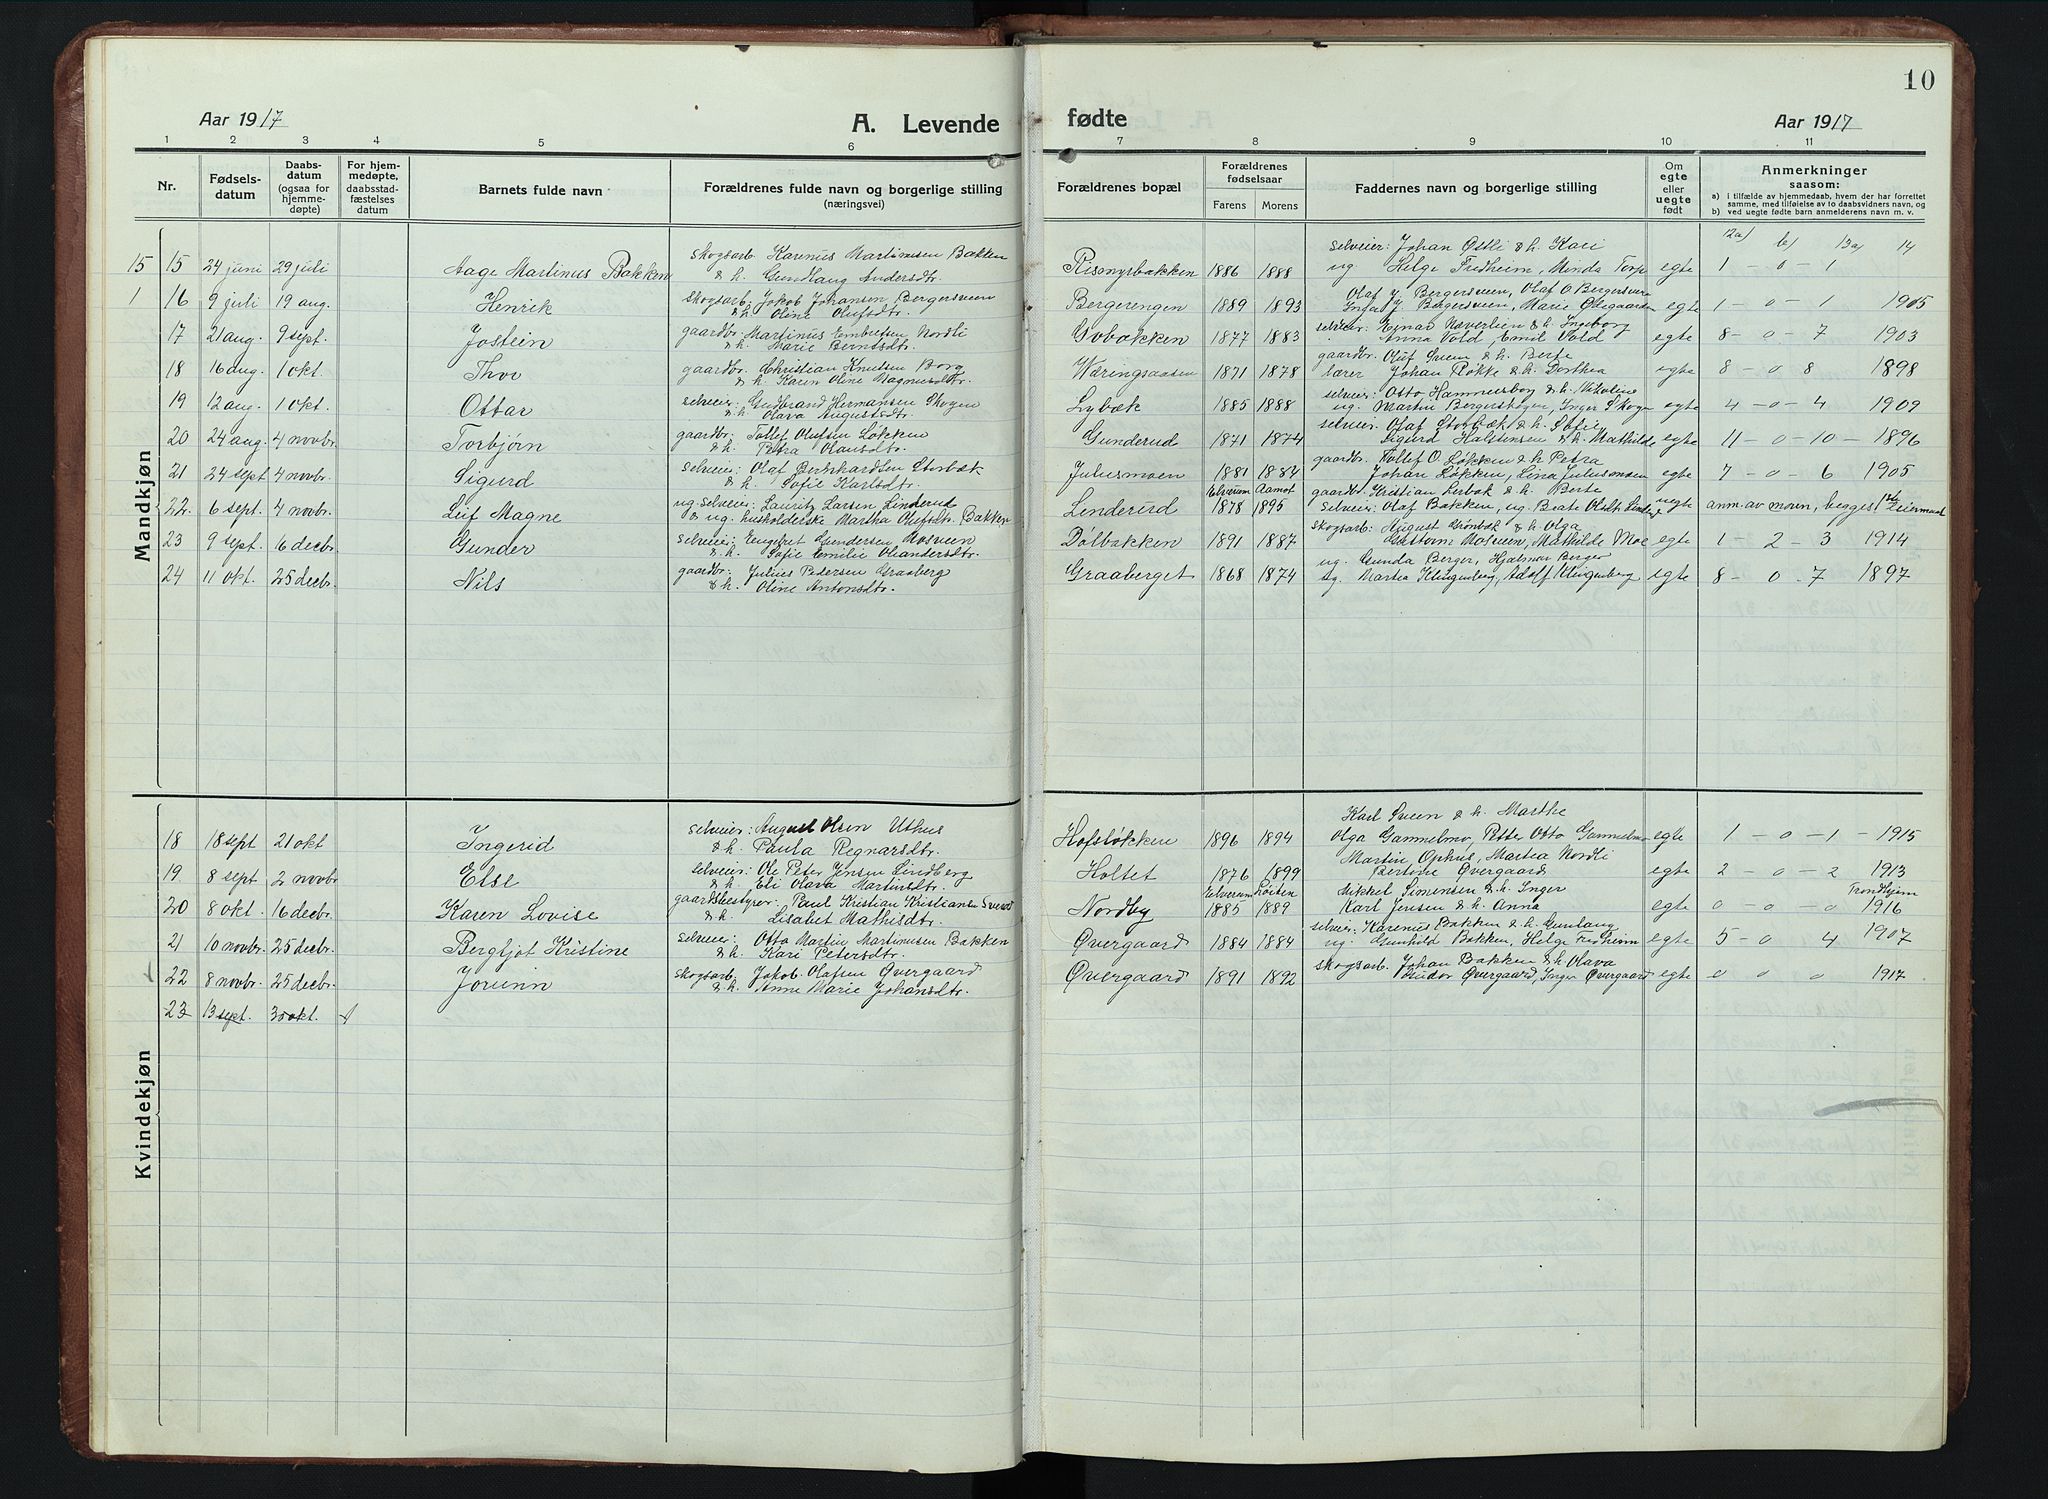 10
Aar 1917 A. Levende fødte Aar 1917
1 2 3 4 5 6 7 8 9 10 11
Nr. Fødsels-datum Daabs-datum (ogsaa for hjemme-døpte) For hjem-medøpte, daabsstad-fæstelses datum Barnets fulde navn Forældrenes fulde navn og borgerlige stilling (næringsvei) Forældrenes bopæl Forældrenes fødselsaar Farens Morens Faddernes navn og borgerlige stilling Om egte eller uegte født Anmerkninger saasom:
a) i tilfælde av hjemmedaab, hvem der har forrettet samme, med tilføielse av to daabsvidners navn, og
b) ved uegte fødte barn anmelderens navn m. v.
12a) b) 13a) 14
Mandkjøn
skogsarb. Karenus Martinusen Bakken selveier: Johan Østli & h. Kari
15 15 24 juni 29 juli Aage Martinus Bakken & h. Gundhaug Andersdtr. Risonysbakken 1886 1888 ug Helge Fredheim, Minda Torp egte 1 - 0 - 1
1 16 9 juli 19 aug. Henrik skogsarb. Jakob Johansen Bergersveen Bergerengen 1889 1893 Olaf J. Bergersveen, Olaf O. Bergersveen egte 1 - 0 - 1 1905
& h. Oline Olufsdtr. Inga J. Bergersveen, Marie Øvegaarden
17 21 aug. 9 sept. Jostein gaardbr. Martinus Embretsen Nordli Govbakken 1877 1883 selveier: Ejnar Kaverlien & h. Ingeborg egte 8 - 0 - 7 1903
& h. Marie Berntsdtr. Anna Vold, Emil Vold
18 16 aug. 1 okt. Thor gaardbr. Christian Knutsen Borg Wæringsaasen 1871 1878 gaardbr: Oluf Sveen & h. Berte egte 8 - 0 8 1898
& h. Karen Oline Magnusdtr. lærer Johan Røkke & h. Dorthea
19 12 aug. 1 okt. Ottar selveier: Gudbrand Hermansen Skogen Lybæk 1885 1888 selveier: Otto Hammersborg & h. Nikoline egte 4 - 0 - 4 1909
& h. Olava Augustsdtr. ug. Martin Bergershagen, Inger Skogen
20 24 aug. 4 novbr. Torbjørn gaardbr: Tollef Olufsen Løkken Gunderud 1871 1874 selveier: Olaf Storbæk & h. Sofie egte 11 - 0 - 10 - 1896
& h. Petra Olausdtr. Sigurd Halstensen & h. Mathilde
21 24 sept 4 novbr. Sigurd selveier: Olaf Bernhardsen Storbæk Julusmoen 1881 1884 gaardbr. Tollef O. Løkken & h. Petra egte 7 - 0 - 6 1905
& h. Sofie Karlsdtr. Johan Løkken, Lina Julusmoen
22. 6 sept. 4 novbr. Leif Magne ug. selveier: Lauritz Larsen Linderud Linderud Elverum 1878 Aamot 1895 gaardbr. Kristian Lerbak & h. Berte uegte anm. av moren, begges 1ste leiermaal
& ug. husholderske Martha Olufsdtr. Bakken selveier: Olaf Bakken, ug. Beate Olsdtr.
23 9 sept. 16 decbr. Gunder selveier: Engebret Gundersen Mosveen Dølbakken 1891 1887 skogsarb: August Grønbæk & h. Olga egte 1 - 2 - 3 1914
& h. Sofie Emilie Oleandersdtr. Guttorm Mosveen, Mathilde Moe
24 11 okt. 25 decbr. Nils gaardbr: Julius Pedersen Graaberg Graaberget 1868 1874 ug. Gunda Berger, Hjalmar Berger egte 8 - 0 - 7 1897
& h. Oline Antonsdtr. ug. Martea Klingenberg, Adolf Klingenberg
Kvindekjøn
18 18 sept 21 okt Ingerid selveier: August Olsen Uthus Hofsløkken 1896 1894 Karl Sveen & h. Marthe egte 1 - 0 - 1 - 1915
& h. Paula Regnarsdtr. Olga Gammelmo, Petter Otto Gammelmo
19 8 sept. 2 novbr Else selveier: Ole Peter Jensen Lindberg Holtet 1876 1899 Martin Ophus, Martea Nordli egte 2 - 0 - 2 1913
& h. Eli Olava Martinsdtr. Bertine Øvergaard
20 8 okt. 16 decbr. Karen Lovise gaardsbestyrer: Paul Kristian Kristiansen Nordby Elverum 1885 Løiten 1889 Mikkel Simensen & h. Inger egte 0 - 0 - 0 Trondhjem 1916
& h. Lisabet Mathisdtr. Karl Jensen & h. Anna
21 10 novbr. 25 decbr. Bergljot Kristine selveier: Otto Martin Martinusen Bakken Øvergaard 1884 1884 selveier: Karenus Bakken & h. Gunlaug egte 5 - 0 4 1907
& h. Kari Petersdtr. ug. Gunhild Bakken, Helge Fredheim
22 8 novbr. 25 decbr. Jorunn skogsarb. Jakob Olafsen Øvergaard Øvergaard 1891 1892 skogsarb. Johan Bakken & h. Olava egte 0 0 0 1917
& h. Anne Marie Johansdtr. Gudor Øvergaard, Inger Øvergaard
23 13 sept. 30 okt.